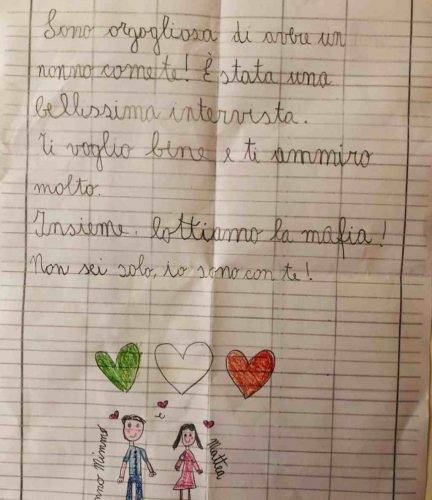 Sono orgogliosa di avere un
nonno come te! È stata una
bellissima intervista.
Ti voglio bene e ti ammiro
molto.
Insieme, lottiamo la mafia!
Non sei solo, io sono con te!
e
Mimmo
Mattea